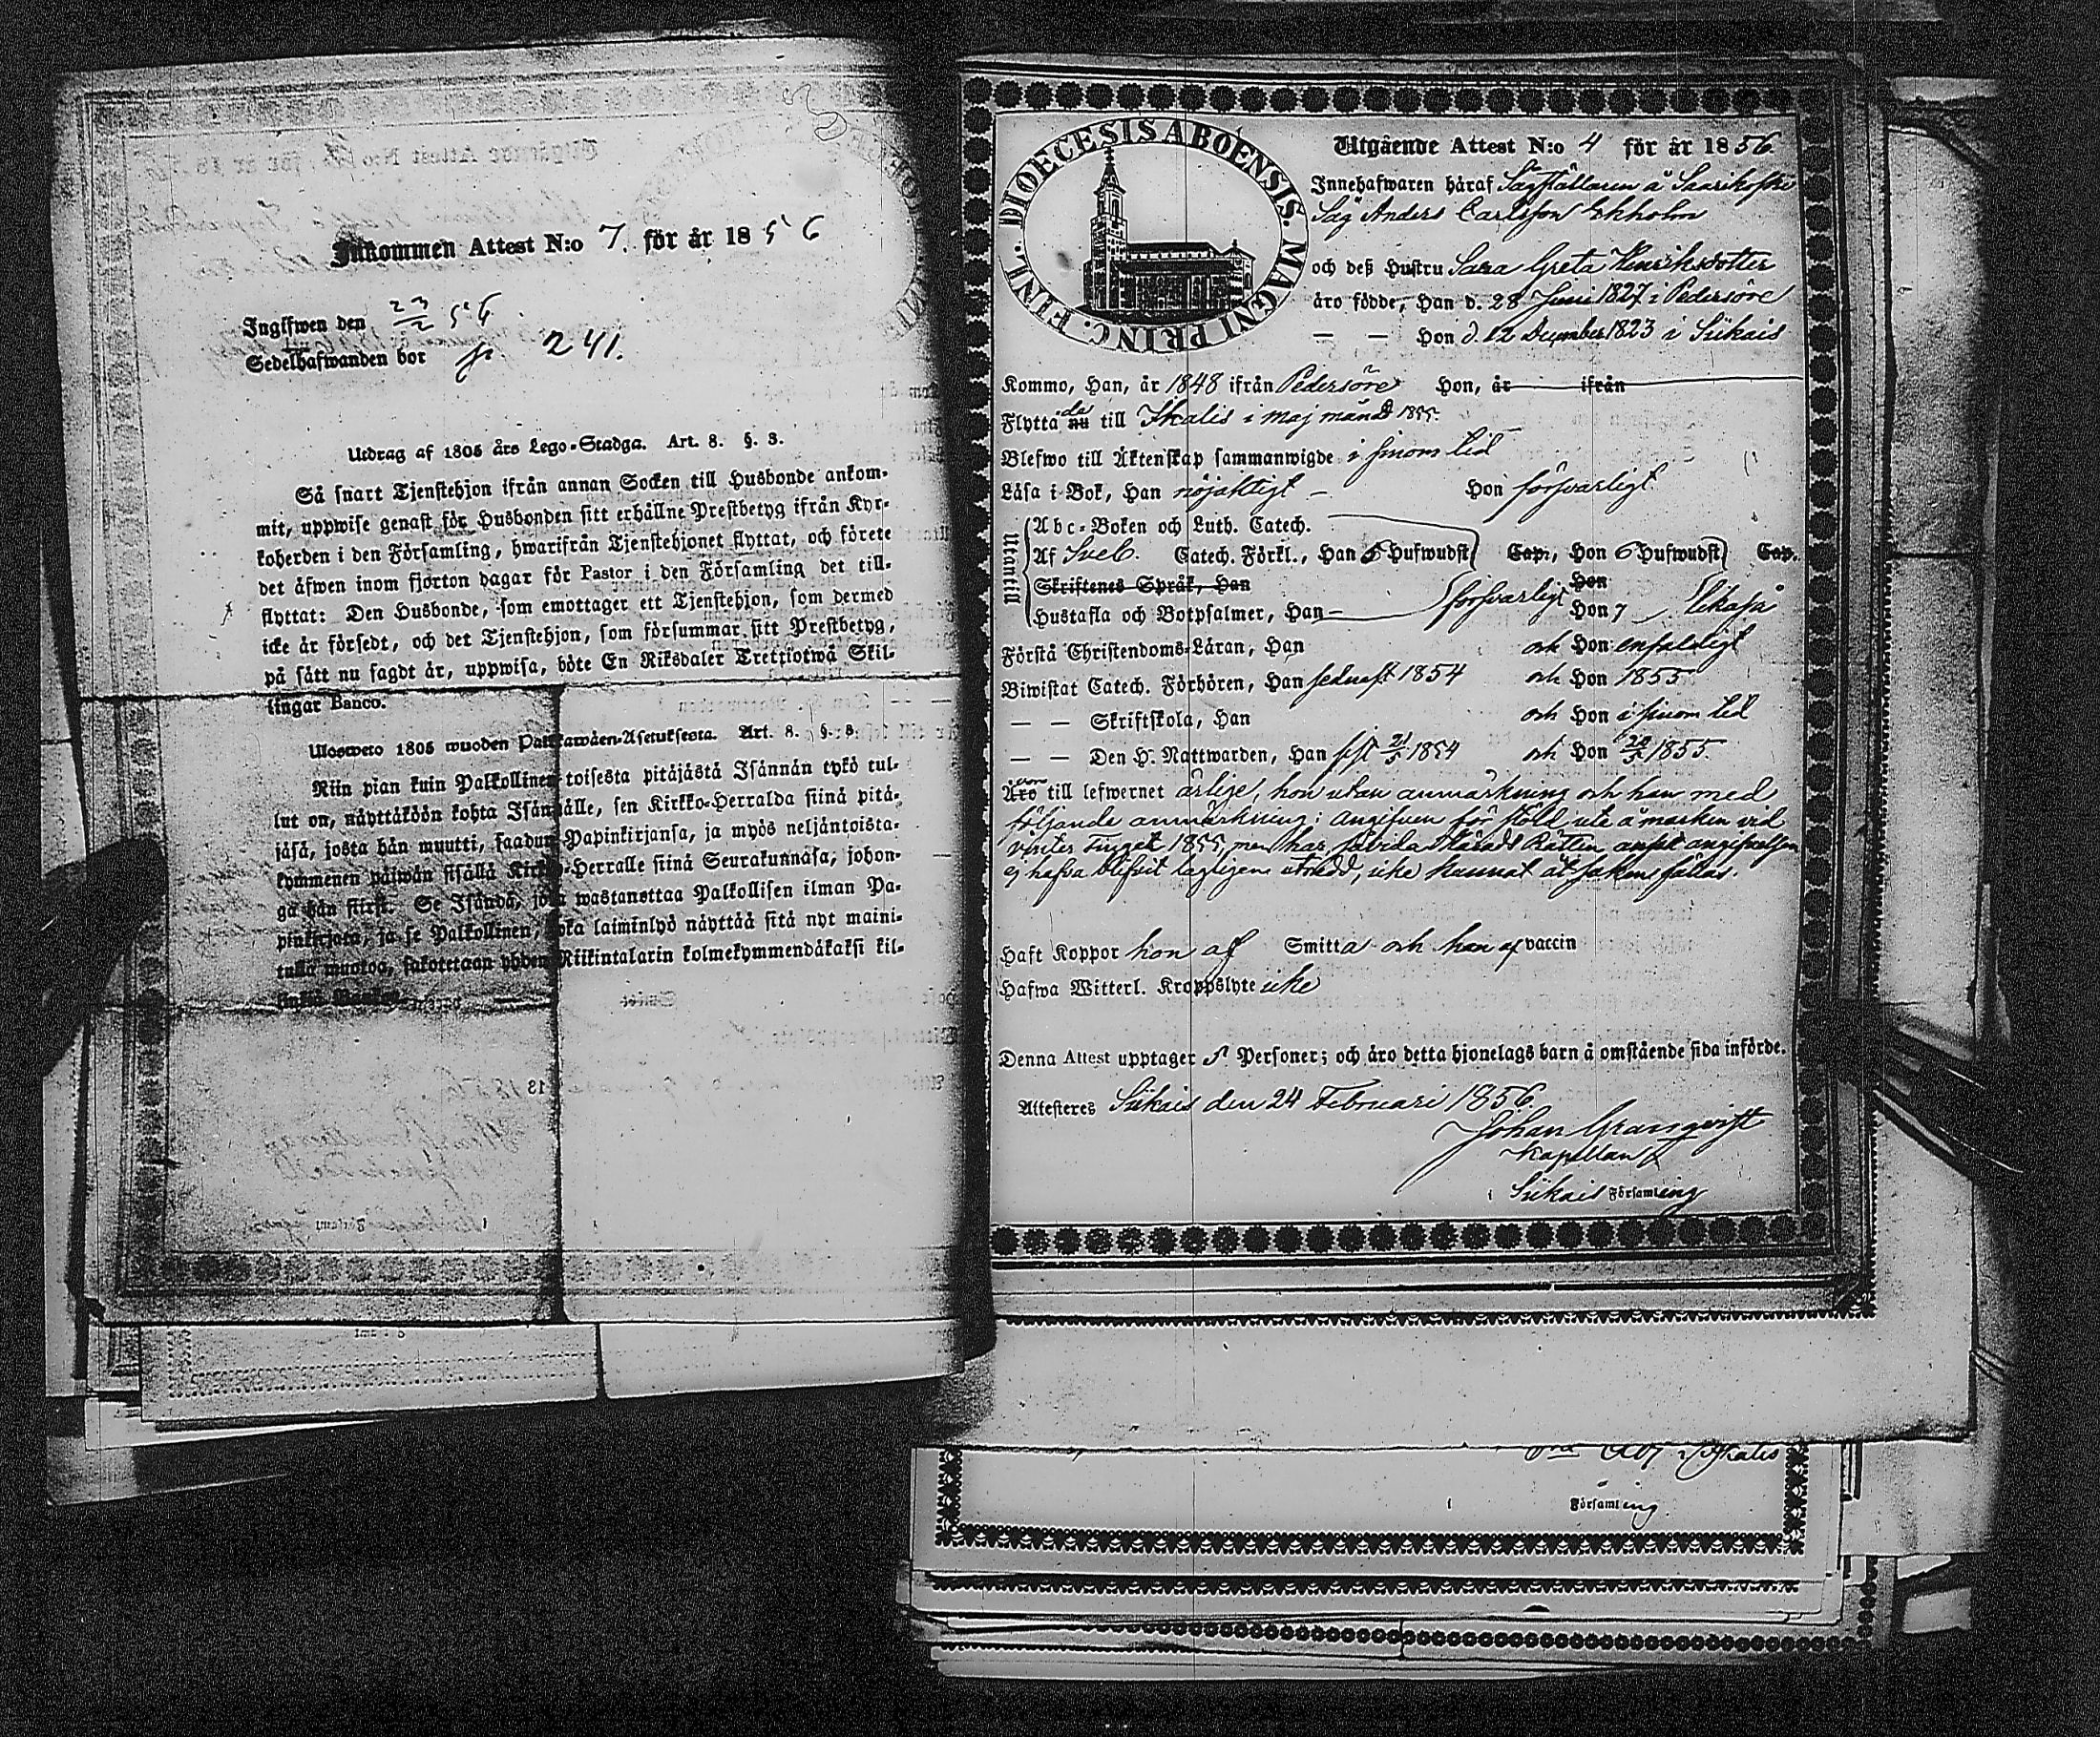 Inkommen Attest N:o 7. för år 1856
Ingifwen den 23/2 56.
Sedelhafwanden bor p 241.
Utdrag af 1805 års Lego-Stadga. Art. 8. §. 3.
Så snart Tjenstehjon ifrån annan Socken till Husbonde ankom-
mit, uppwise genast för Husbonden sitt erhållne Prestbetyg ifrån Kyr-
koherden i den Församling, hwarifrån Tjenstehjonet flyttat, och förete
det äfwen inom fjorton dagar för Pastor i den Församling det till-
flyttat: Den Husbonde, som emottager ett Tjenstehjon, som dermed
icke är försedt, och det Tjenstehjon, som försummar sitt Prestbetyg,
på sätt nu sagdt är, uppwisa, böte En Riksdaler Trettiotwå Skil-
lingar Banco.
Ulosweto 1805 wuoden Palkkawäen-Asetuksesta. Art. 8. §. 3.
Niin pian kuin Palkollinen toisesta pitäjästä Isännän tykö tul-
lut on, näyttäköön kohta Isännälle, sen Kirkko-Herralda siinä pitä-
jäsä, josta hän muutti, saadun Papinkirjansa, ja myös neljäntoista-
kymmenen päiwän sisällä Kirkko-Herralle siinä Seurakunnasa, johon-
ga hän siirsi. Se Isändä, joka wastanottaa Palkollisen ilman Pa-
pinkirjata, ja se Palkollinen, joka laiminlyö näyttää sitä nyt maini-
tulla muotoa, sakotetaan yhden Riikintalarin kolmekymmendäkaksi kil-
DIOECESIS ABOENSIS. MAGNI PRINC. FENL.
Utgående Attest N:o 4 för år 1856.
Innehafwaren häraf Sågställaren å Saarikoski
Såg Anders Carlsson Ekholm
och deß Hustru Sara Greta Henriksdotter
äro födde, Han d. 28 Juni 1827 i Pedersöre
— — Hon d. 12 December 1823 i Siikais
Kommo, Han, år 1848 ifrån Pedersöre Hon, år ifrån
Flyttade nu till Ikalis i maj månad 1855.
Blefwo till Äktenskap sammanwigde i sinom tid
Läsa i Bok, Han nöjaktigt – Hon försvarligt
Utantil
Abc-Boken och Luth. Catech.
Af Sveb. Catech. Förkl., Han 5 Hufwudst Cap., Hon 6 Hufwudst Cap.
Skriftenes Språk, Han försvarligt Hon
Hustafla och Botpsalmer, Han Hon 7 likaså
Förstå Christendoms-Läran, Han och Hon enfaldigt
Biwistat Catech. Förhören, Han sednast 1854 och Hon 1855
— — Skriftskola, Han och Hon i sinom tid
— — Den H. Nattwarden, Han sist 21/5 1854 och Hon 1855.
Äro till lefwernet ärlige, hon utan anmärkning och han med
följande anmärkning: angifven för stöld ute å marken vid
vinter Tinget 1855, men har, såvida Härads Rätten ansett angifvelsen
ej hafva blifvit lagligen utredd, icke kunnat åt saken fällas.
Haft Koppor hon af Smitta och han af vaccin
Hafwa Witterl. Kroppslyte icke
Denna Attest upptager 5 Personer; och äro detta hjonelags barn å omstående sida införde.
Attesteres Siikais den 24 Februari 1856.
Johan Granqvist
Kapellan
i Siikais Församling
Ikalis
i Församling.